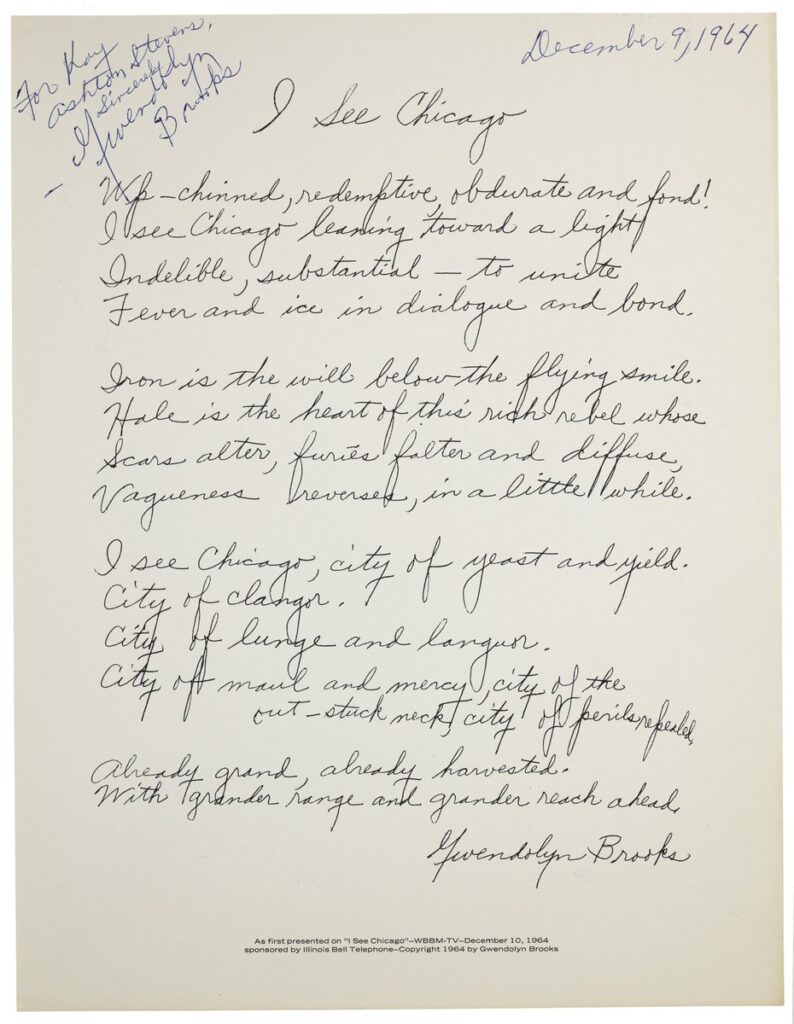 For Kay
Ashton Stevens,
Sincerely
Gwendolyn
Brooks
December 9, 1964
I See Chicago
Up-chinned, redemptive, obdurate and fond!
I see Chicago leaning toward a light
Indelible, substantial — to unite
Fever and ice in dialogue and bond.
Iron is the will below the flying smile.
Hale is the heart of this rich rebel whose
Scars alter, furies falter and diffuse,
Vagueness reverses, in a little while.
I see Chicago, city of yeast and yield.
City of clangor.
City of lunge and languor.
City of maul and mercy, city of the
out-stuck neck, city of perils repealed,
Already grand, already harvested.
With grander range and grander reach ahead.
Gwendolyn Brooks
As first presented on "I See Chicago"–WBBM-TV–December 10, 1964
sponsored by Illinois Bell Telephone–Copyright 1964 by Gwendolyn Brooks